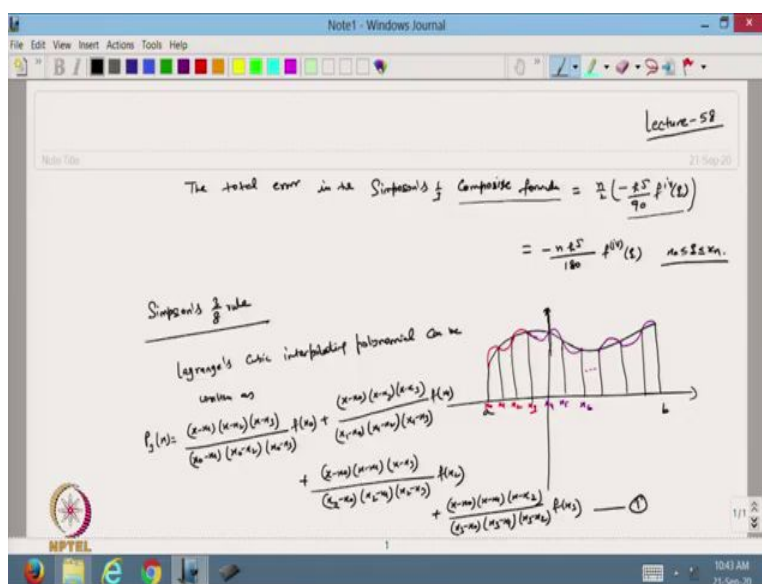 Note1 - Windows Journal
File Edit View Insert Actions Tools Help
B I
Lecture-58
Note Title
21-Sep-20
The total error in the Simpson's 1/3 Composite formula = n/2 (-h^5/90 f^iv(ξ))
= -nh^5/180 f^(iv)(ξ) x0≤ξ≤xn.
Simpson's 3/8 rule
Lagrange's cubic interpolating polynomial can be
written as
P3(x) = (x-x1)(x-x2)(x-x3)/(x0-x1)(x0-x2)(x0-x3) f(x0) + (x-x0)(x-x2)(x-x3)/(x1-x0)(x1-x2)(x1-x3) f(x1)
+ (x-x0)(x-x1)(x-x3)/(x2-x0)(x2-x1)(x2-x3) f(x2)
+ (x-x0)(x-x1)(x-x2)/(x3-x0)(x3-x1)(x3-x2) f(x3) — ①
a x1 x2 x3 x4 x5 x6 ... b
NPTEL
1
1/1
10:43 AM
21-Sep-20